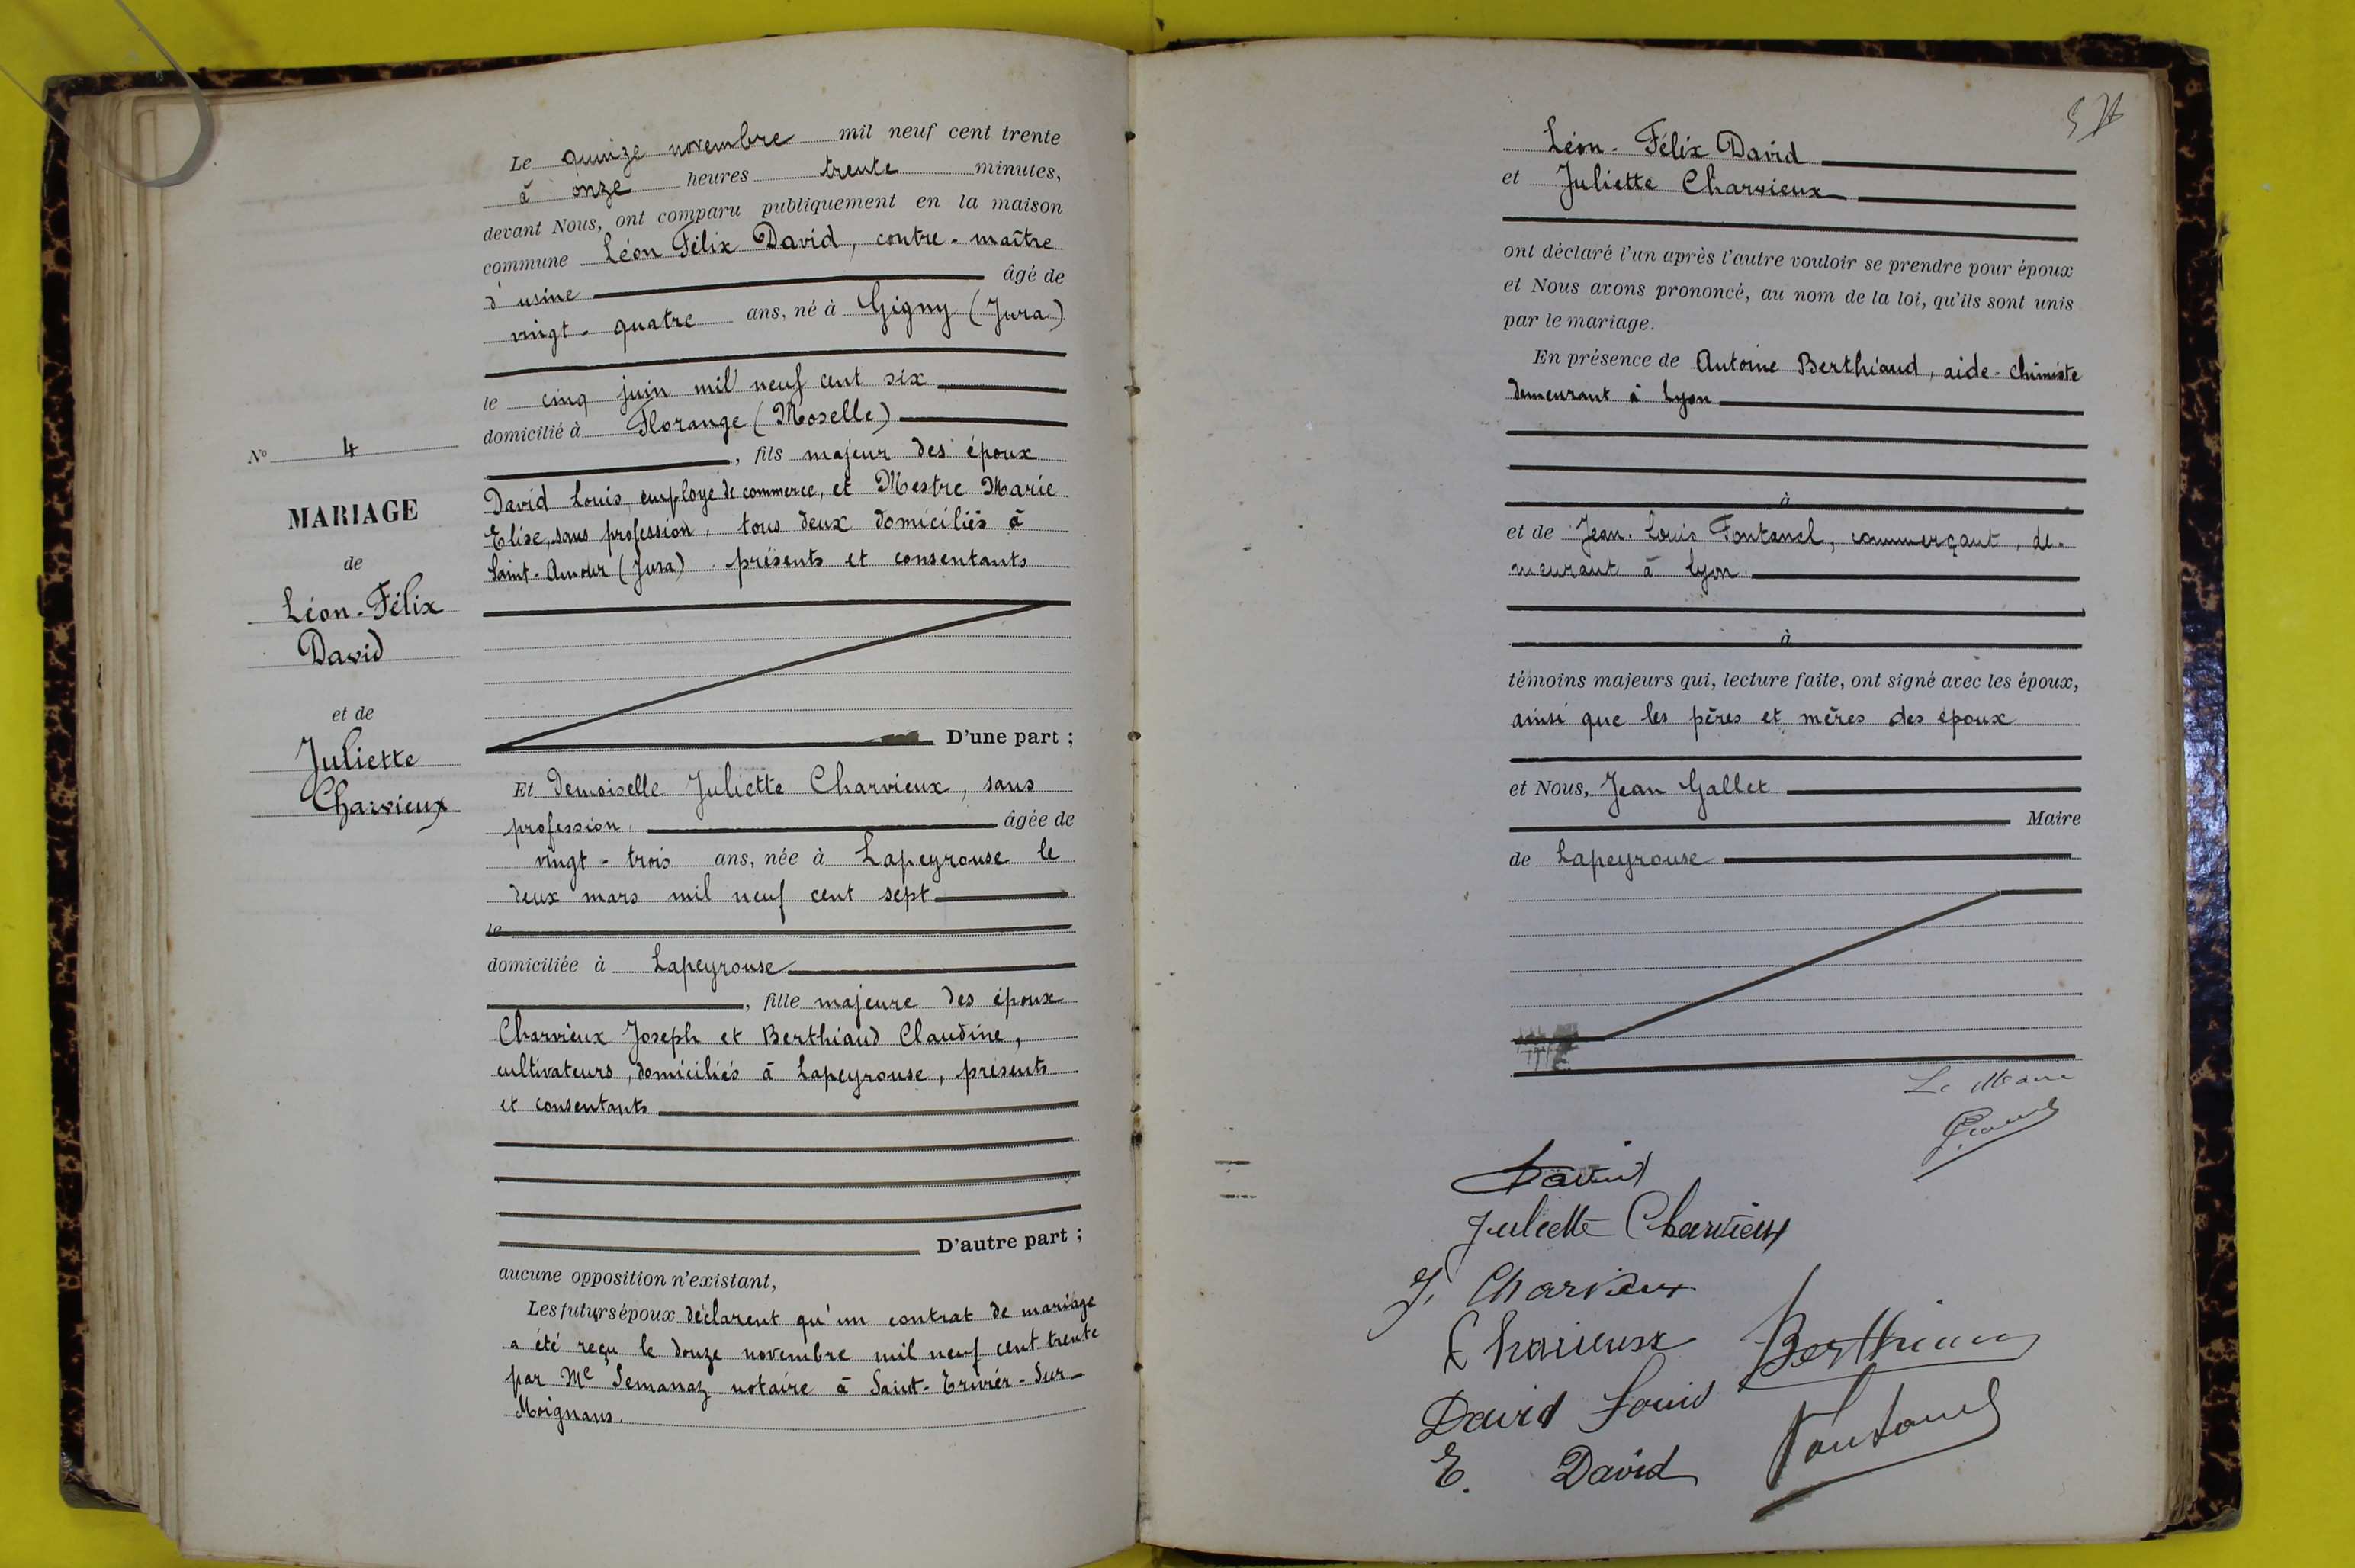 Le quinze novembre mil neuf cent trente
à onze heures trente minutes,
devant Nous, ont comparu publiquement en la maison
commune Léon Félix David, contre-maître
d'usine âgé de
vingt-quatre ans, né à Gigny (Jura)
le cinq juin mil neuf cent six
domicilié à Florange (Moselle)
, fils majeur des époux
David Louis, employé de commerce, et Mestre Marie
Elise, sans profession, tous deux domiciliés à
Saint-Amour (Jura) présents et consentants
D'une part ;
Et Demoiselle Juliette Charvieux, sans
profession, âgée de
vingt-trois ans, née à Lapeyrouse le
deux mars mil neuf cent sept
le
domiciliée à Lapeyrouse
, fille majeure des époux
Charvieux Joseph et Berthiaud Claudine,
cultivateurs, domiciliés à Lapeyrouse, présents
et consentants
D'autre part ;
aucune opposition n'existant,
Les futurs époux déclarent qu'un contrat de mariage
a été reçu le douze novembre mil neuf cent trente
par Me notaire à Saint-Trivier-Sur-
Moignans.
No 4
MARIAGE
de
Léon-Félix
David
et de
Juliette
Charvieux
Léon-Félix David
et Juliette Charvieux
ont déclaré l'un après l'autre vouloir se prendre pour époux
et Nous avons prononcé, au nom de la loi, qu'ils sont unis
par le mariage.
En présence de Antoine Berthiaud, aide-chimiste
demeurant à Lyon
à
et de Jean-Louis Fontanel, commerçant, de-
meurant à Lyon
à
témoins majeurs qui, lecture faite, ont signé avec les époux,
ainsi que les pères et mères des époux
et Nous, Jean Gallet
Maire
de Lapeyrouse
Le Maire
David
Juliette Charvieux
J. Charvieux
Charvieux
Berthiaud
David Louis
Fontanel
E. David